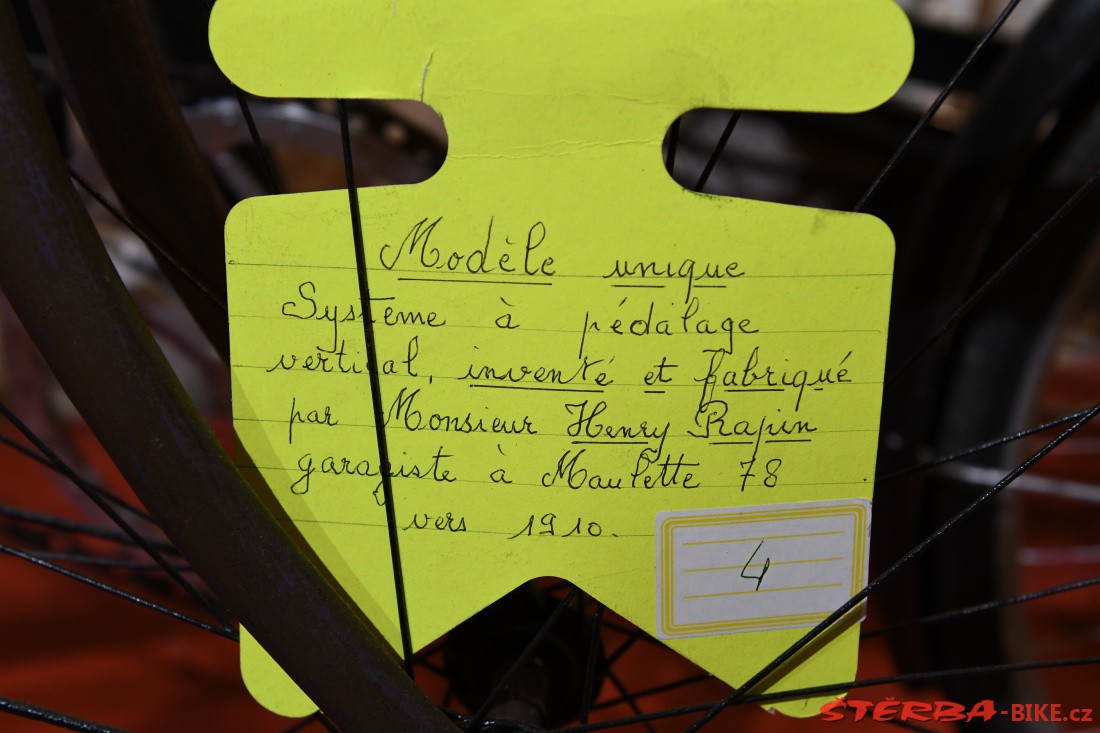 Modèle unique
Système à pédalage
vertical, inventé et fabriqué
par Monsieur Henry Rapin
garagiste à Maulette 78
vers 1910.
4
ŠTĚRBA-BIKE.cz